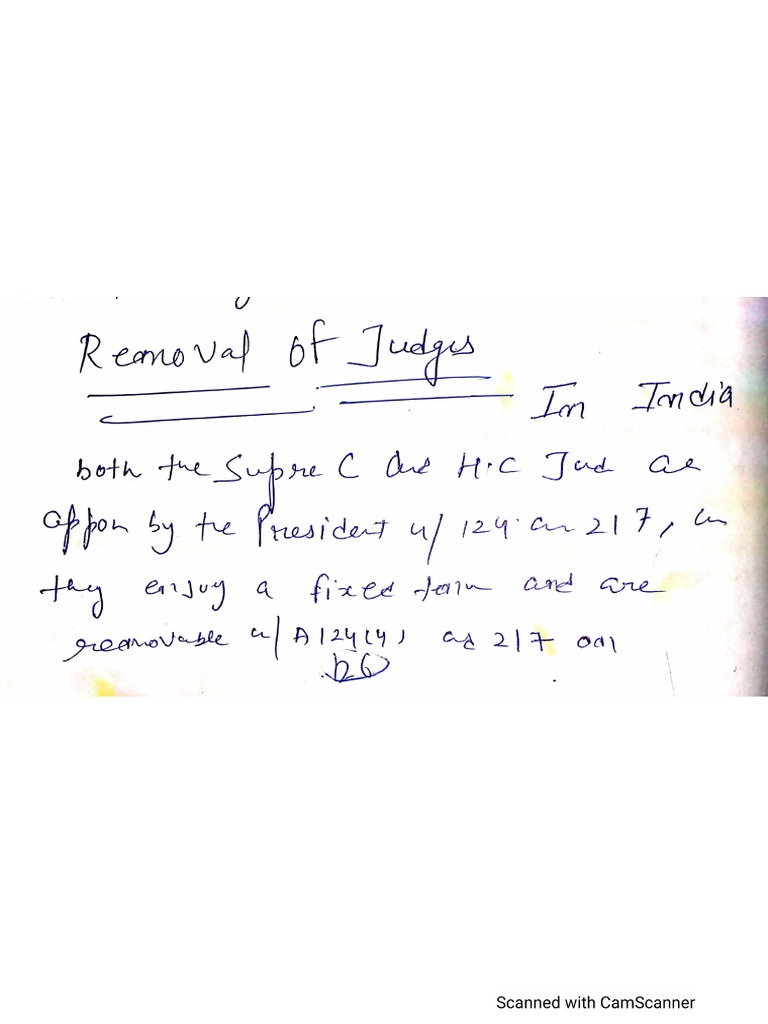 Removal of Judges
In India
both the Supre C and H.C Jud are
appon by the President u/ 124 an 217,
they enjoy a fixed term and are
removable u/ A 124(4) as 217
Scanned with CamScanner